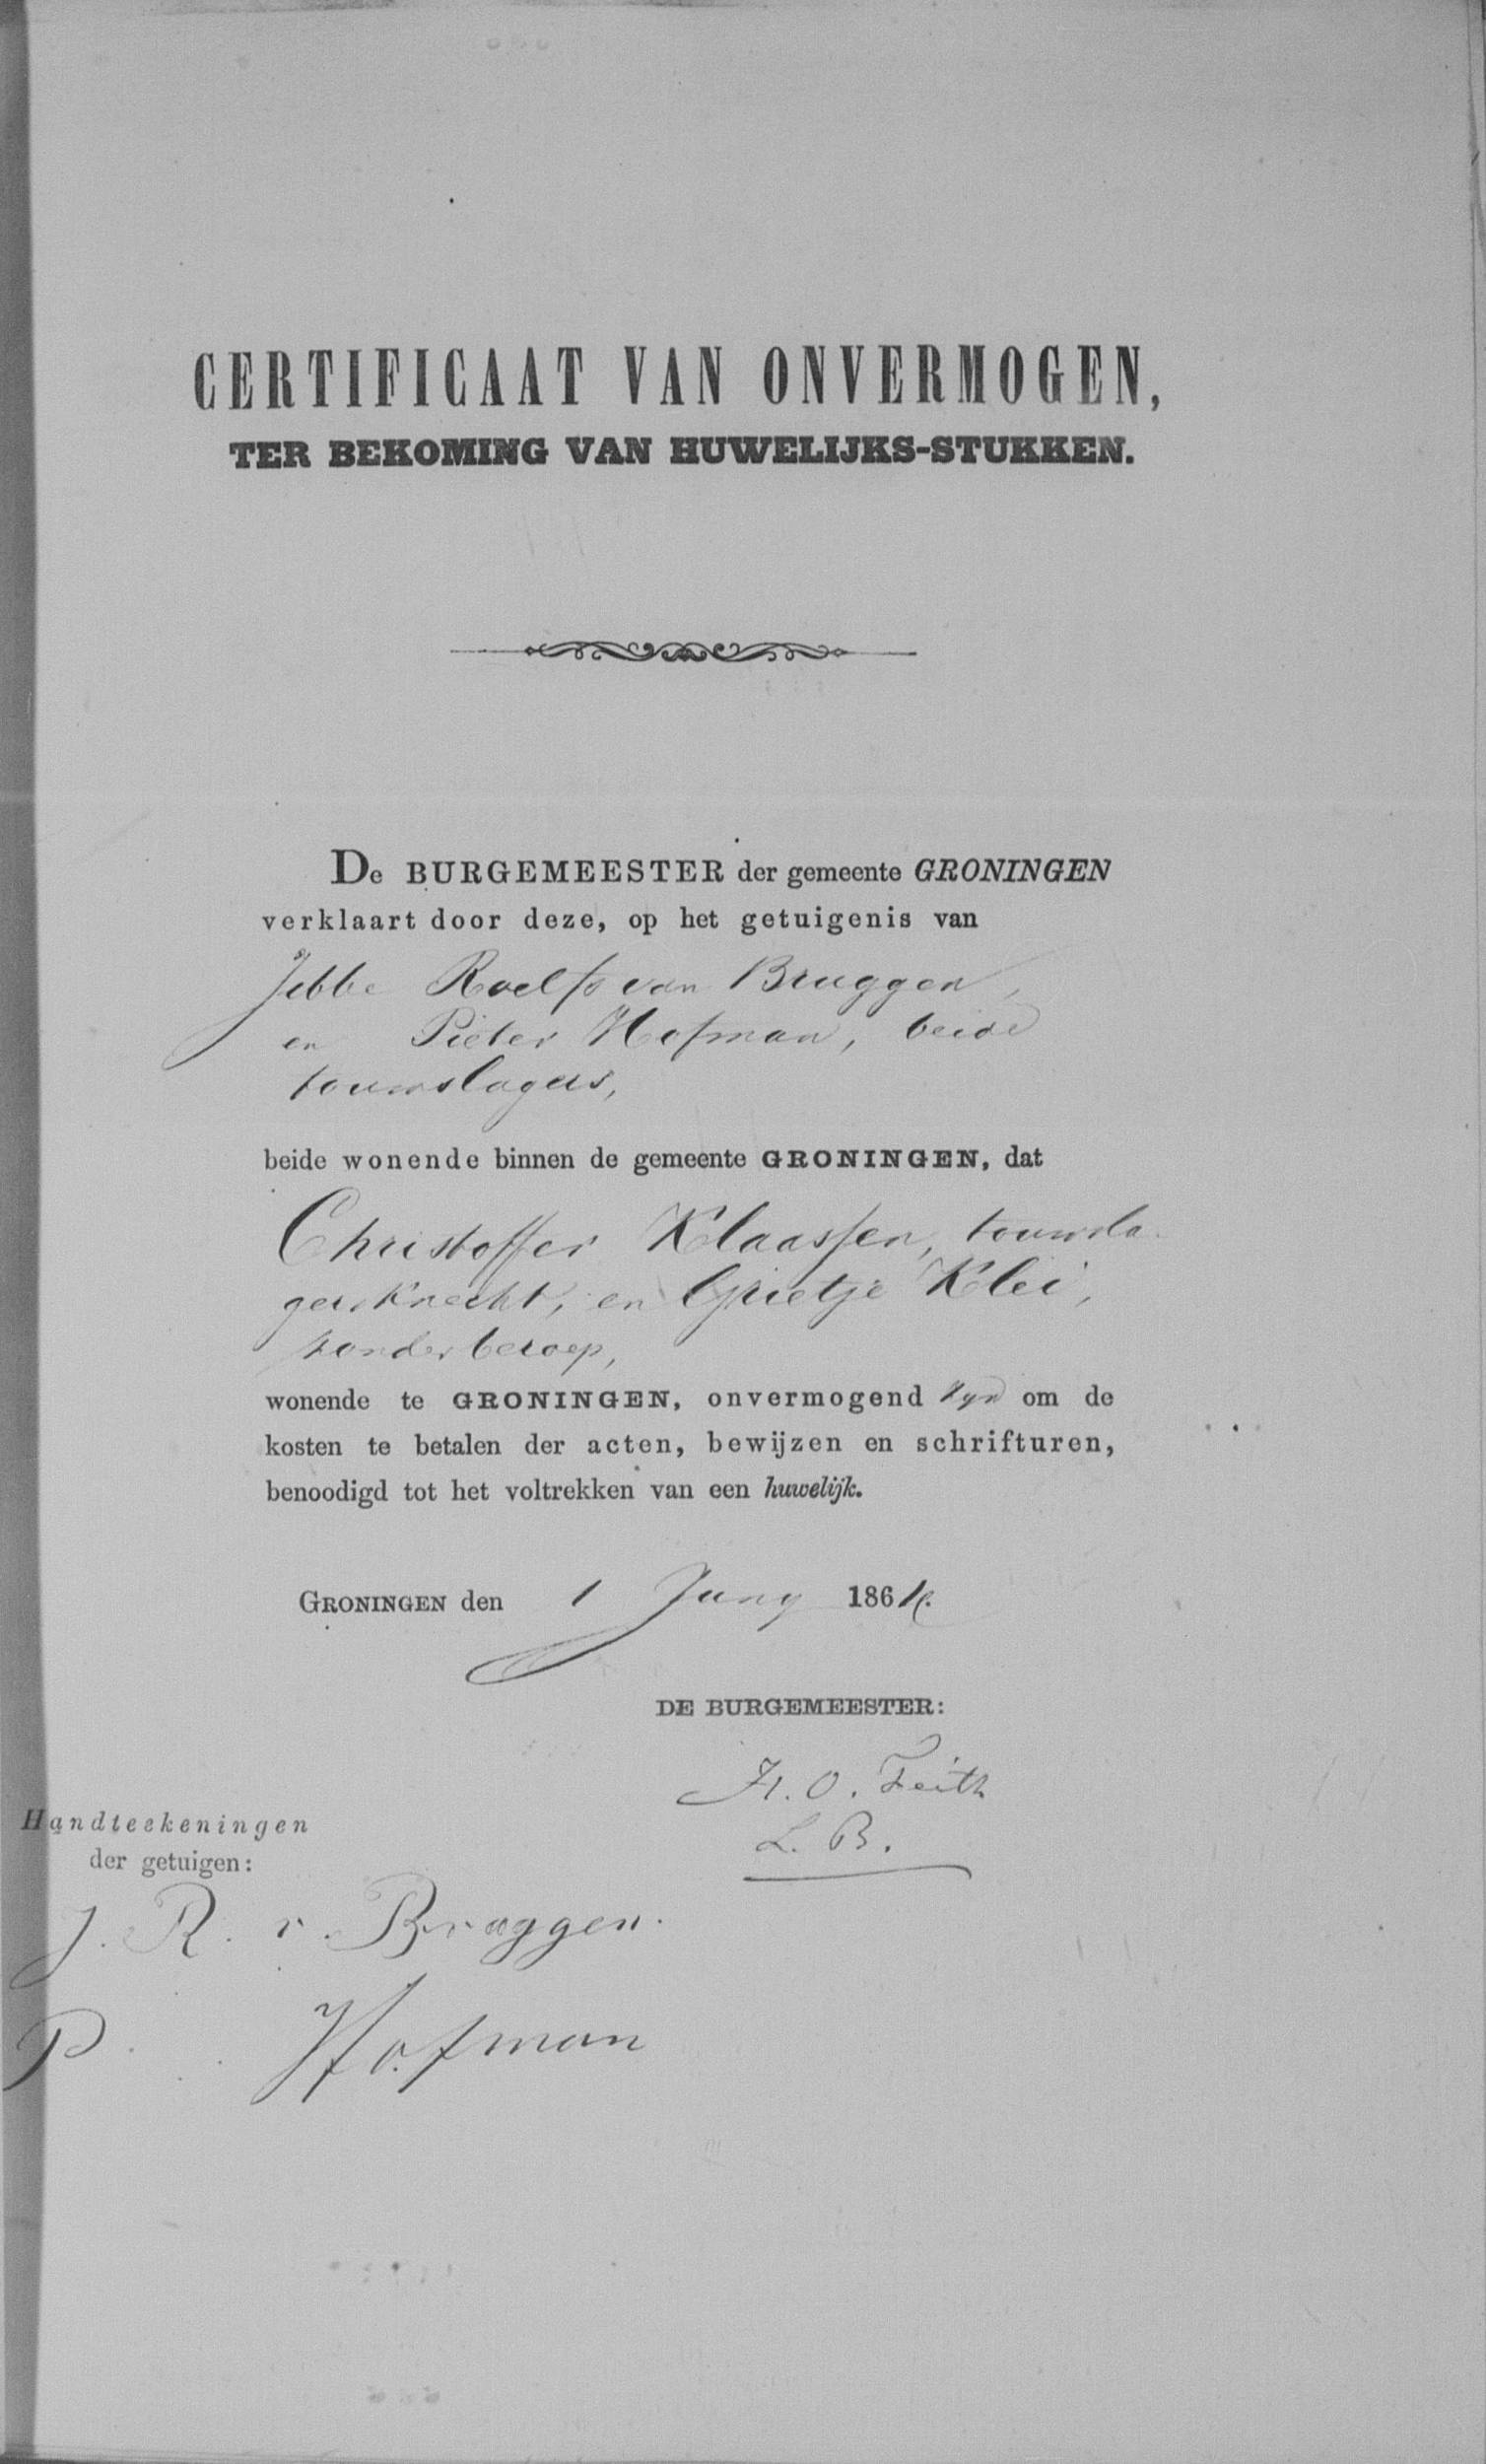 CERTIFICAAT VAN ONVERMOGEN,
TER BEKOMING VAN HUWELIJKS-STUKKEN.
De BURGEMEESTER der gemeente GRONINGEN
verklaart door deze, op het getuigenis van
Jebbe Roelfs van Bruggen,
en Pieter Hofman, beide
touwslagers,
beide wonende binnen de gemeente GRONINGEN, dat
Christoffer Klaassen, touwsla-
gersknecht, en Grietje Klei,
zonder beroep,
wonende te GRONINGEN, onvermogend zyn om de
kosten te betalen der acten, bewijzen en schrifturen,
benoodigd tot het voltrekken van een huwelijk.
GRONINGEN den 1 Juny 1864.
DE BURGEMEESTER:
H. O. Feith
L. B.
Handteekeningen
der getuigen:
J. R. v. Bruggen.
P. Hofman